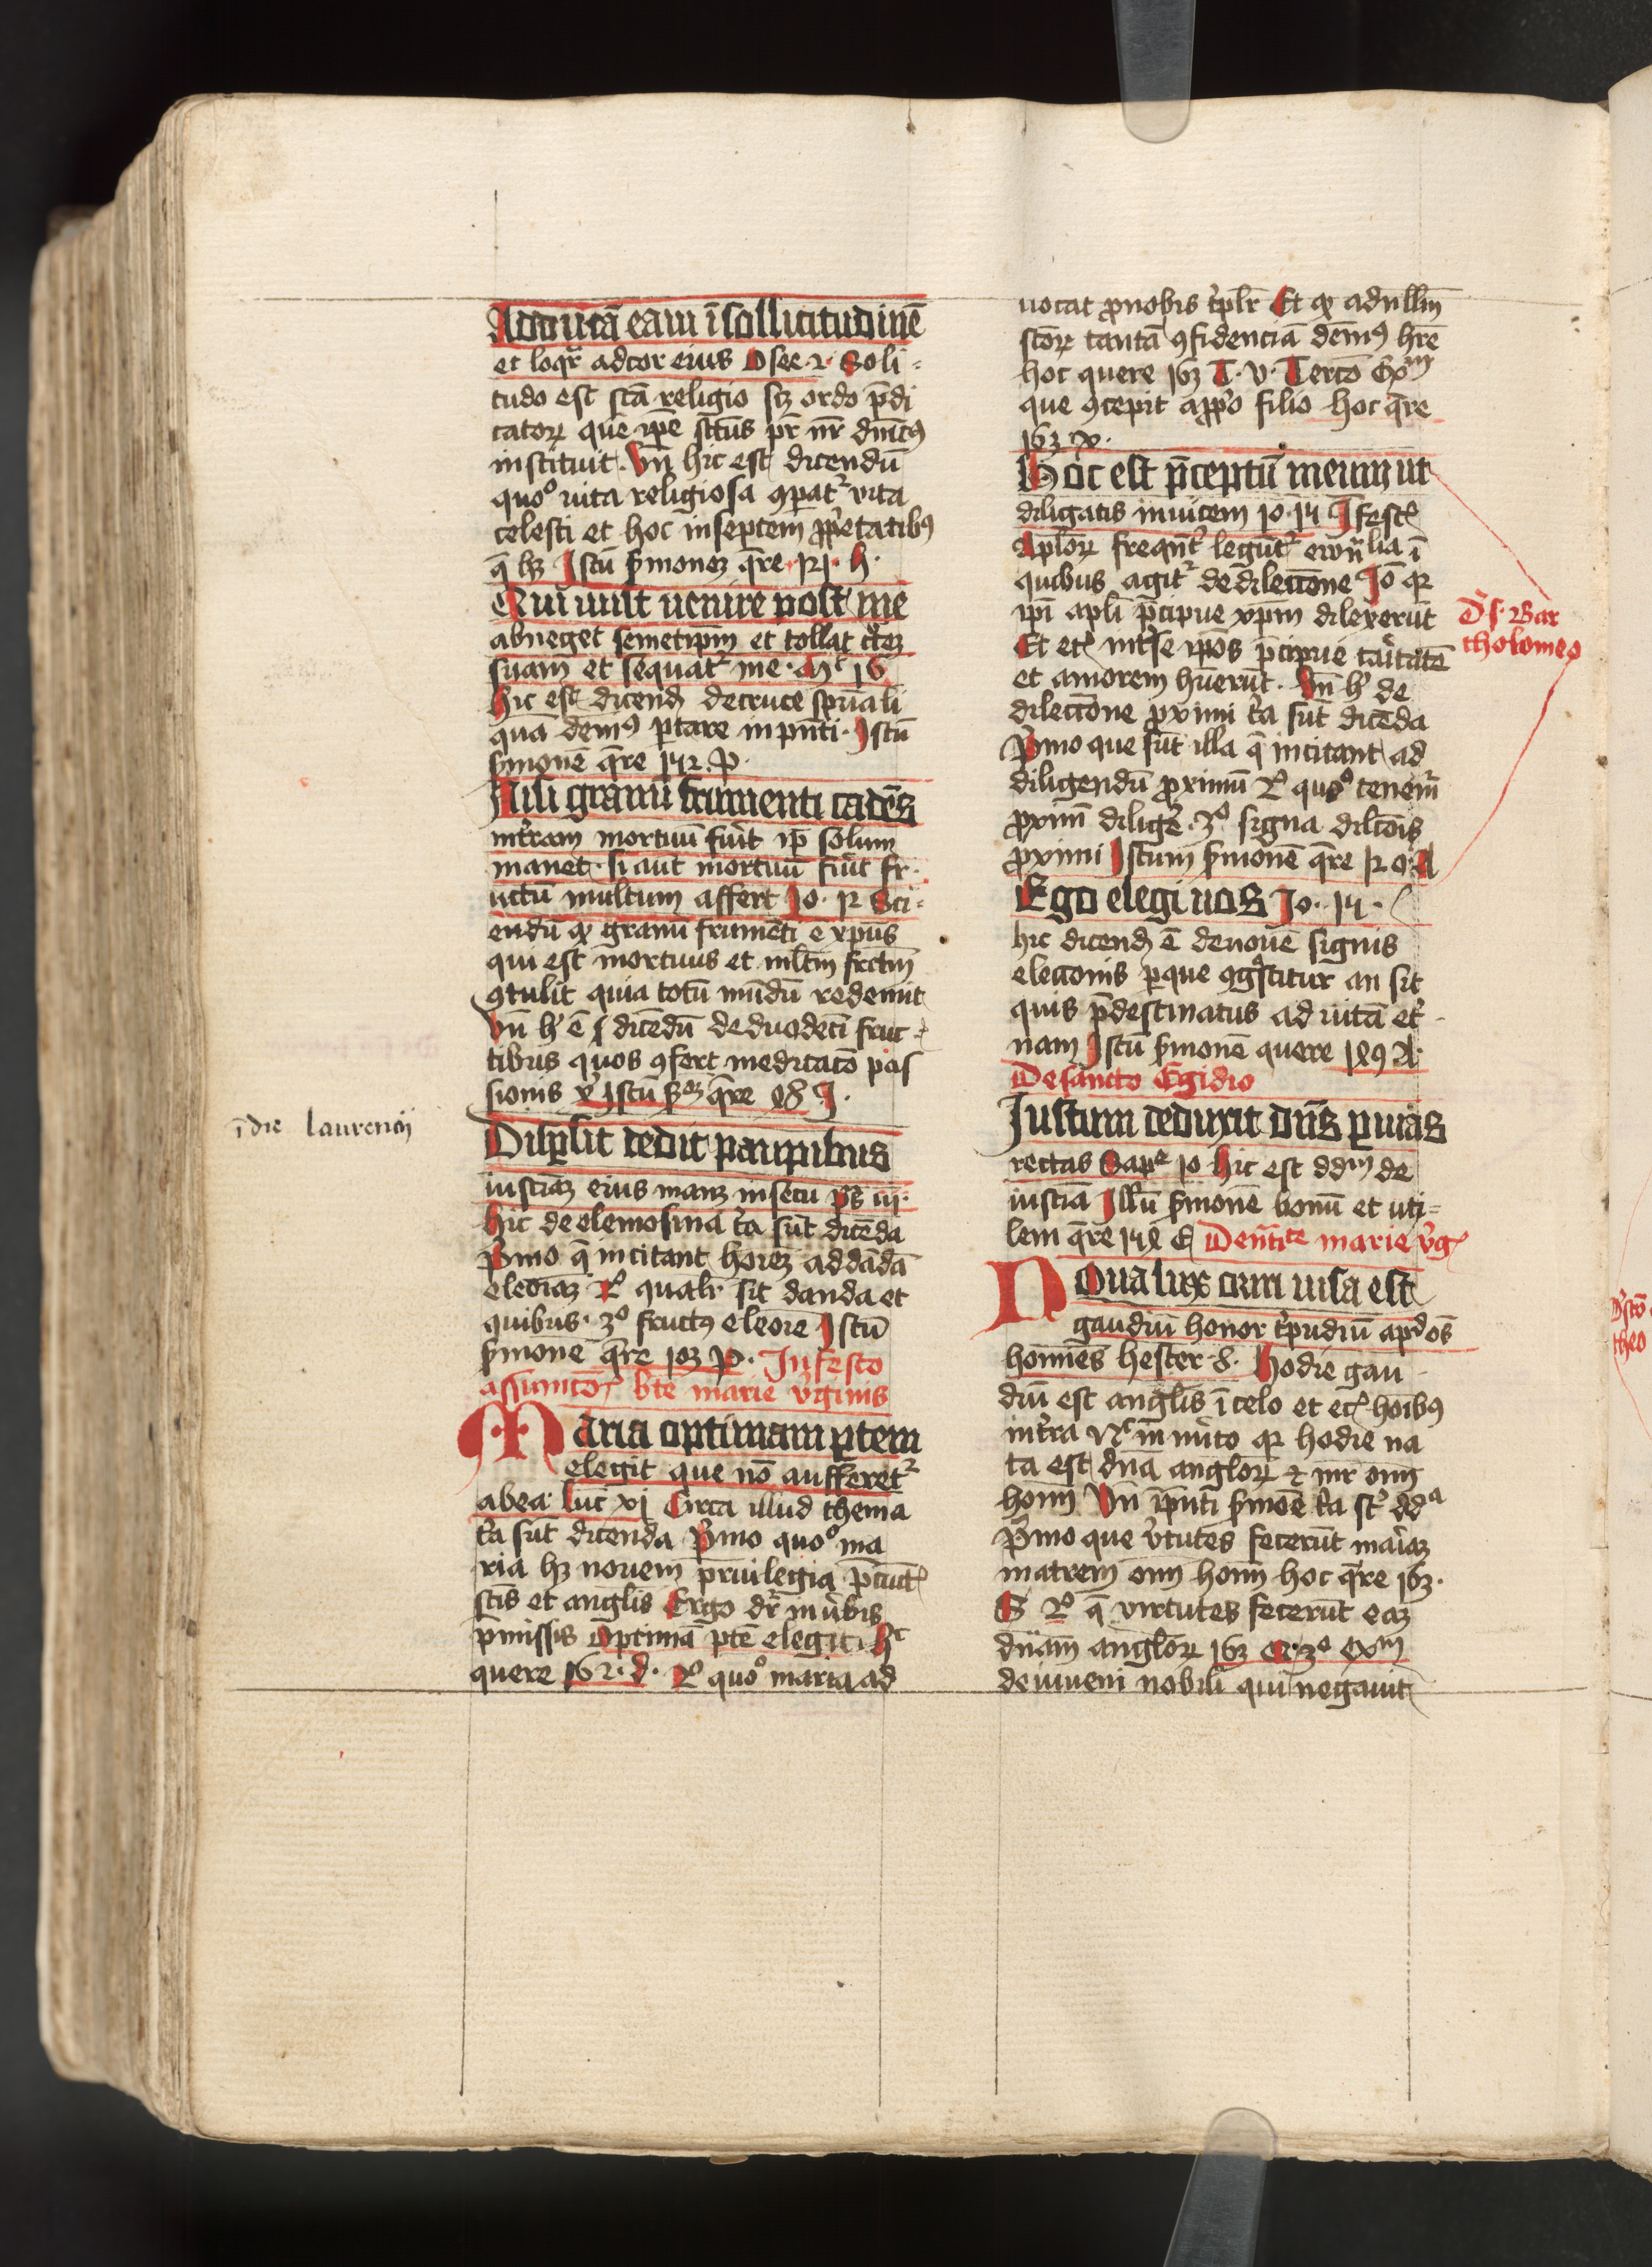 Adducā eam ī sollicitudinē
et loqr̄ ad cor eius Osee 2 Soli=
tudo est scā religio scz ordo p̄di
catoꝝ quē ip̄e sctūs pr̄ nr̄ dnīcꝰ
instituit. Vn̄ hic est dicendū
quoº uita religiosa ꝯparatᷣ vita
celesti et hoc in septem ꝓp̄etatibꝰ
q̄ hꝫ Istū sermonez q̄re 121 h.
Qui uult uenire post me
abneget semetip̄m et tollat crucez
suam et sequatᷣ me Mᵗ 16
hic est dicend de cruce spūali
quā demꝰ portare in pn̄ti Istū
sermonē q̄re 142 P.
Nisi granū frumenti cadēs
in terram mortuū fuit ip̄ solum
manet. si aut mortuū fuit fr
uctū multum affert Jo. 12 Sci=
endū qꝫ granū frumēti ē xp̄us
qui est mortuus et mltm̄ frctm̄
ꝯtulit quia totū mūdū redemit
Vn̄ hͥ ē dicēdū de duodeci fruc=
tibus quos ꝯfert meditacō pas
sionis xͥ Istū q̄re 98 J.
ī die laurencij
Disꝑsit dedit pauꝑibus
iusticiaz eius manz in secu pˢ iij.
hic de elemosina tͥa sūt dicēda
Pͥmo q̄ incitant hoiez ad dādā
eleoiaz 2º qualr̄ sit danda et
quibus. 3º fructꝰ eleoie Istū
sermonē q̄re 103 P. In festo
assumcōis bt̄e marie vͥginis
Maria optimam ꝑtem
elegit que nō aufferetᷣ
ab ea Luc̄ xj Circa illud thema
tͥa sūt dicenda Pͥmo quoº ma
ria hꝫ nouem p̄uilegia p̄ cūctꝭ
scīs et anglīs Ergo dr̄ in ūbis
p̄missis Optimā ꝑtē elegit hᶜ
quere 162. d. 2º quoº maria ad
uocat ꝓ nobis tͥplr̄ Et qꝫ ad nullm̄
sctōꝝ tantā ꝯfidenciā dem̄ꝰ hr̄e
hoc quere 163 T. v. Tercō Exᵐ
que ꝯcepit a ꝓp̄o filio hoc q̄re
163 x.
Hoc est p̄ceptū meum ut
diligatis inuicem Jo 14 In festꝭ
Apl̄oꝝ freqn̄t̄ legūtᷣ ewn̄lia ī
quibus agitᷣ de dilecciōne Iō qꝛ
ip̄i apl̄i p̄cipue xp̄m dilexerūt
ds. Bar
tholomeo
Et ip̄os p̄cipue caritatē
et amorem hūerūt. Vn̄ hͥ de
dilecciōne ꝓximi tͥa sūt dicēda
Pͥmo que sūt illa q̄ incitant ad
diligendū ꝓximū 2º quoº tenem̄
ꝓximū diligē 3º signa dilcōis
ꝓximi Istum sermonē q̄re 120 A
Ego elegi uos Jo. 14.
hic dicend ē de nouē signis
eleccōnis ꝑ que ꝯgͦscitur an sit
quis p̄destinatus ad uitā etͥ
nam Istū sermonē quere 189 A.
De sancto Egidio
Justum deduxit dn̄s ꝑ uias
rectas Sapᵉ 10 hic est ddm̄ de
iusticia Illū sermonē bonū et uti=
lem q̄re 148 E De n̄tīᵗᵉ marie vͥgꝭ
Noua lux oriri uisa est
gaudiū honor tͥpudiū apᵈ oēs
homines hester 8. Hodie gau
diū est anglīs ī celo et hoibꝰ
in terra n̄c immito qꝛ hodie na
ta est dn̄a angloꝝ et mr̄ om̄
homī Vn̄ ip̄nti sermoē tͥa sᵗ ddᵃ
Pͥmo que vͥtutes fecerūt maͥaz
matrem om̄ homī hoc q̄re 163.
S 2º q̄ virtutes fecerūt eaz
dn̄am angloꝝ 163 3º exᵐ
de iuueni nobili qui negauit